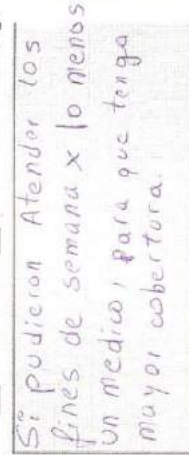 Si pudieron Atender los
fines de semana x lo menos
un medico, para que tenga
mayor cobertura.